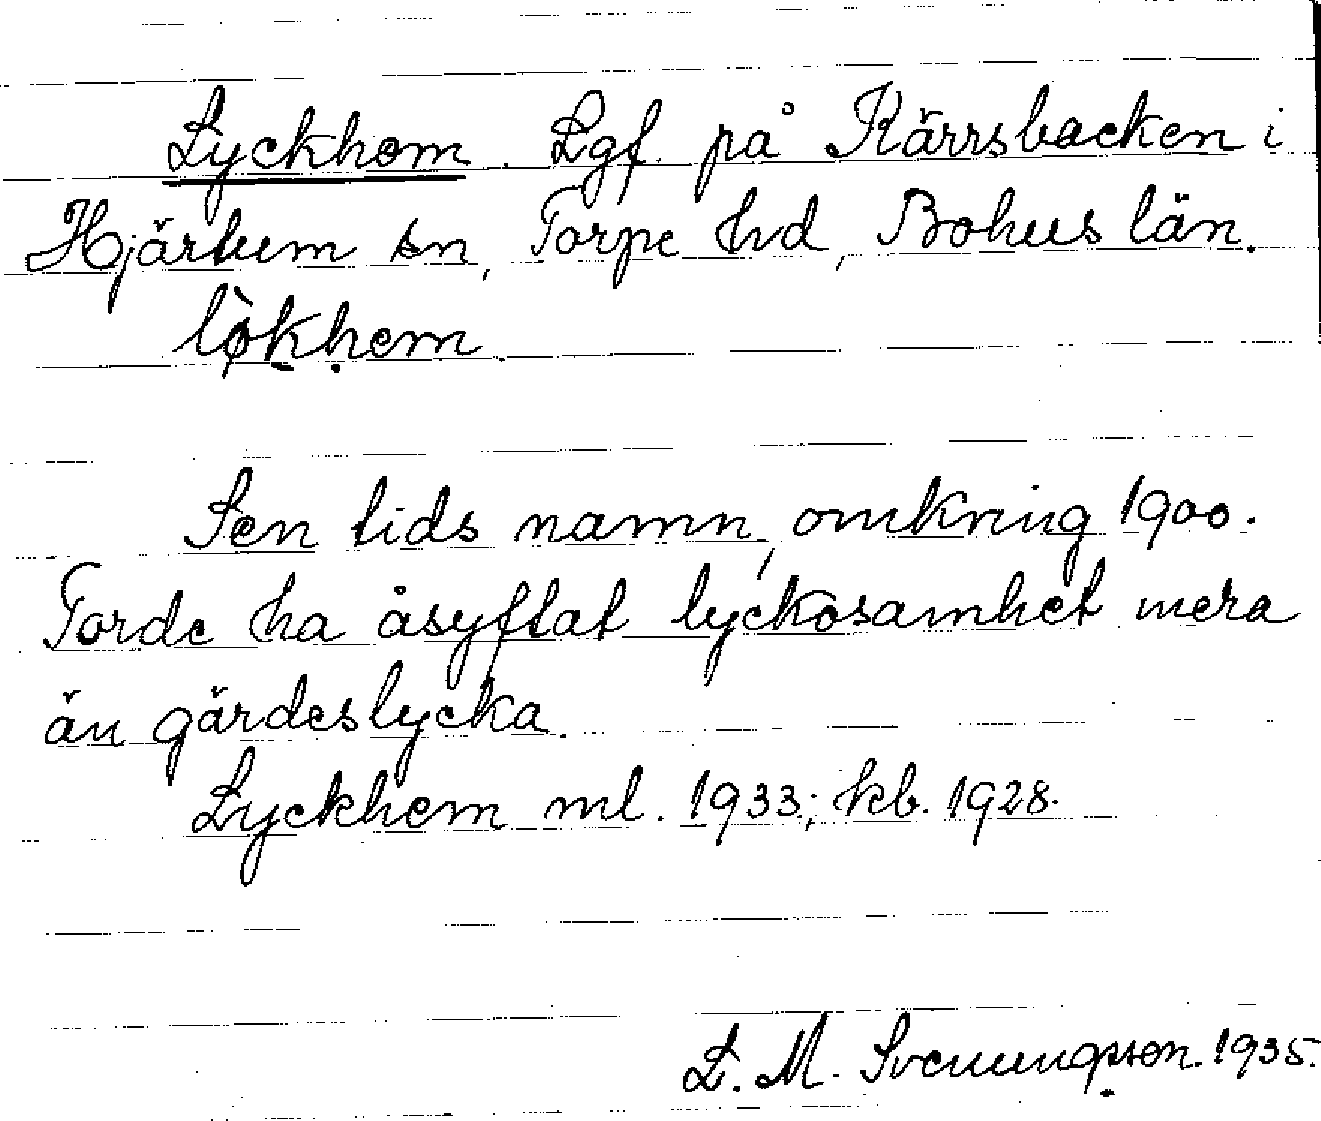 Lyckhem. Lgf. på Kärrsbacken i
Hjärtum sn, Torpe hd, Bohus län.
lø̀khem.
Sen tids namn, omkring 1900.
Torde ha åsyftat lyckosamhet mera
än gärdeslycka.
Lyckhem ml. 1933; kb. 1928.
L. M. Svenungsson. 1935.